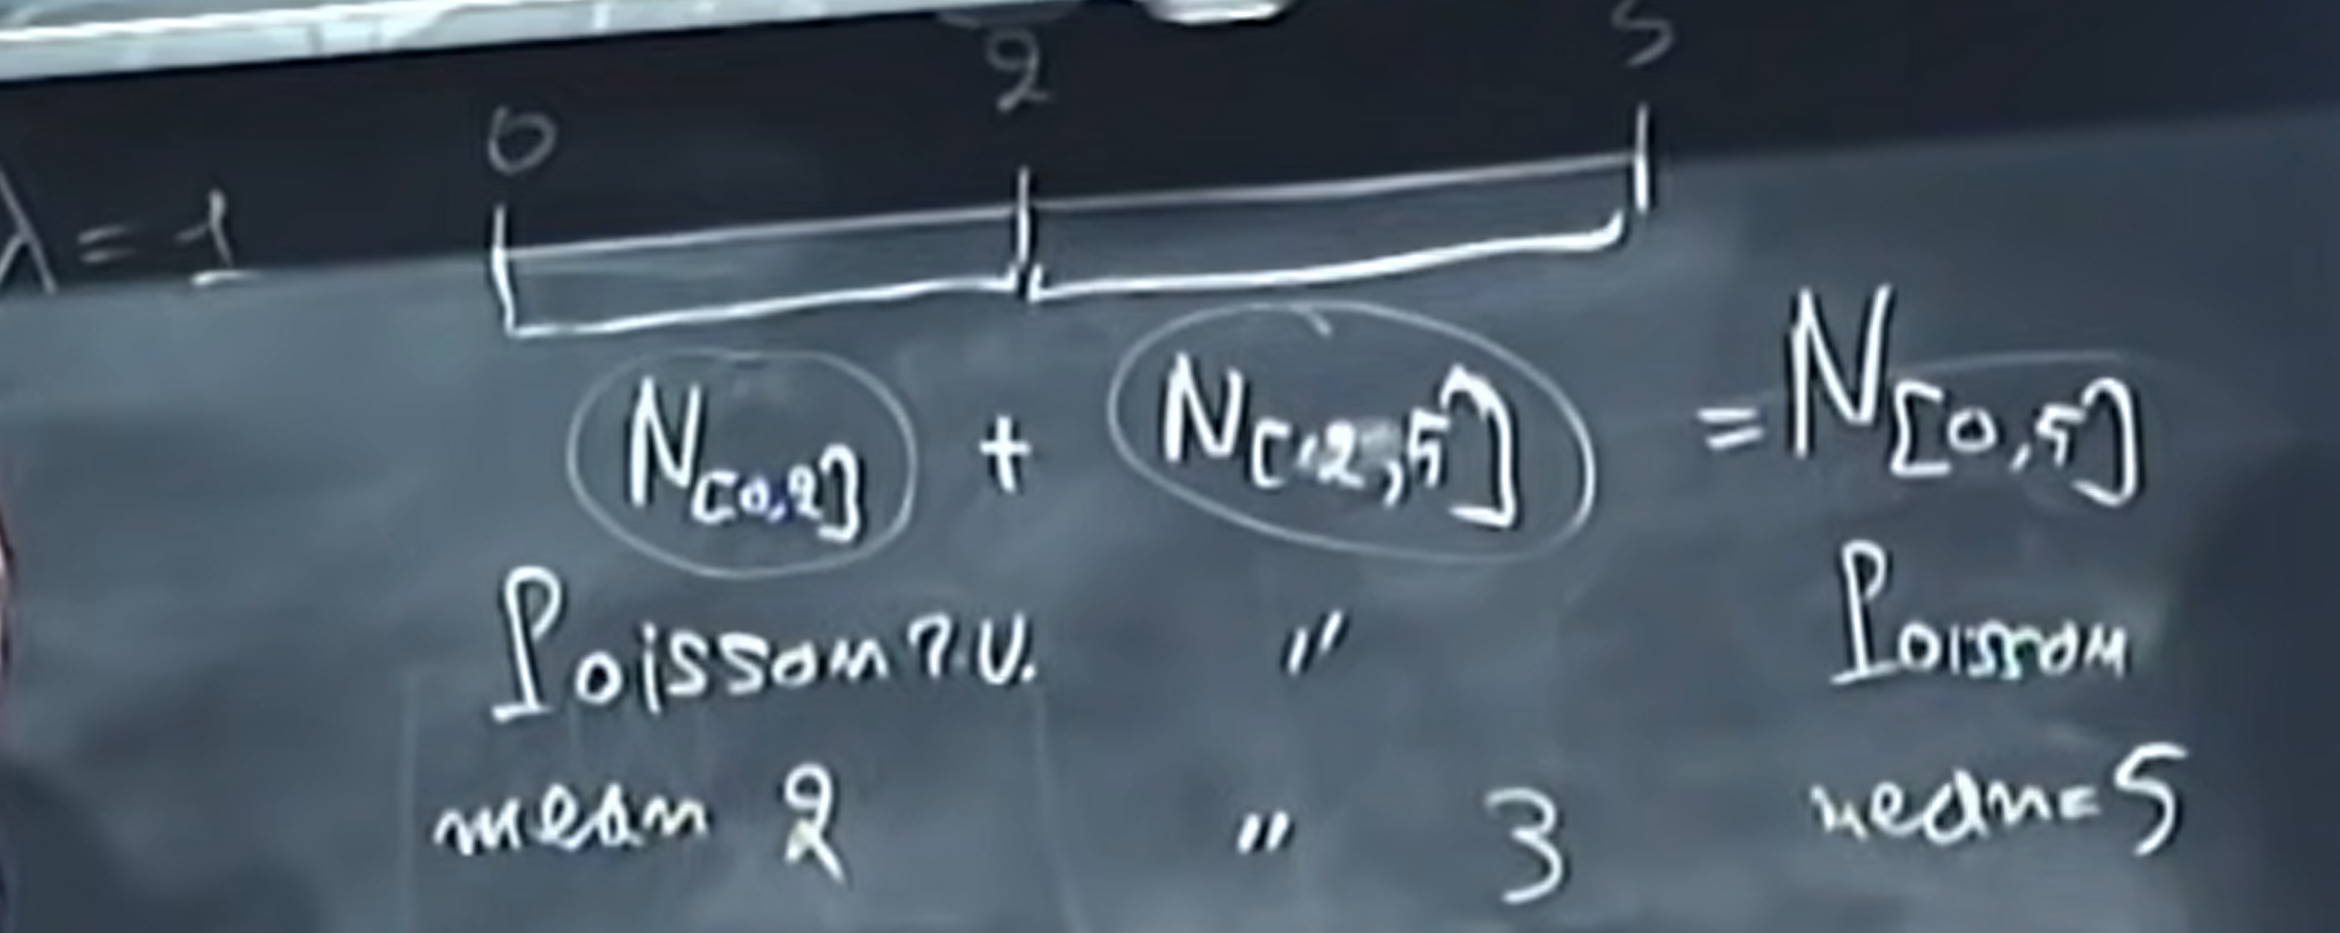 0 2 5
λ = 1
N[0,2] + N[2,5] = N[0,5]
Poisson r.v. " Poisson
mean 2 " 3 mean = 5